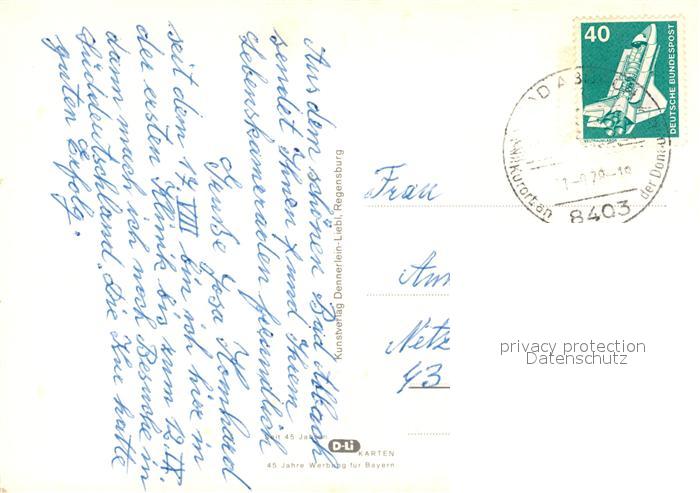 Aus dem schönen Bad Abbach
sendet Ihnen und Ihrem
Lebenskameraden freundlich
Grüße Josa
seit dem 17. VIII bin ich hier in
der ersten Klinik bis zum 12. IX.
dann mach ich noch Besuche in
Süddeutschland. Die Kur hatte
guten Erfolg.
Kunstverlag Dennerlein-Liebl, Regensburg
Seit 45 Jahren
D-Li
KARTEN
45 Jahre Werbung für Bayern
40
DEUTSCHE BUNDESPOST
8403
der Donau
Frau
An
Netz
43
privacy protection
Datenschutz